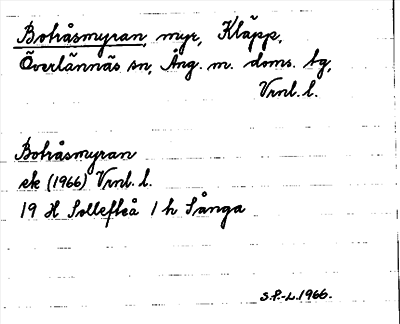 Botråsmyran, myr, Kläpp,
Överlännäs sn, Ång. m. doms. tg,
Vrnl. l.
Botråsmyran
ek (1966) Vrnl. l.
19 H Sollefteå 1 h Sånga
S.P.-L. 1966.